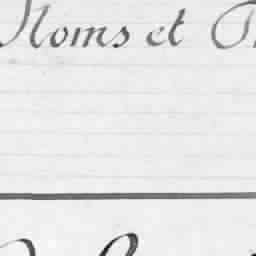 Noms et